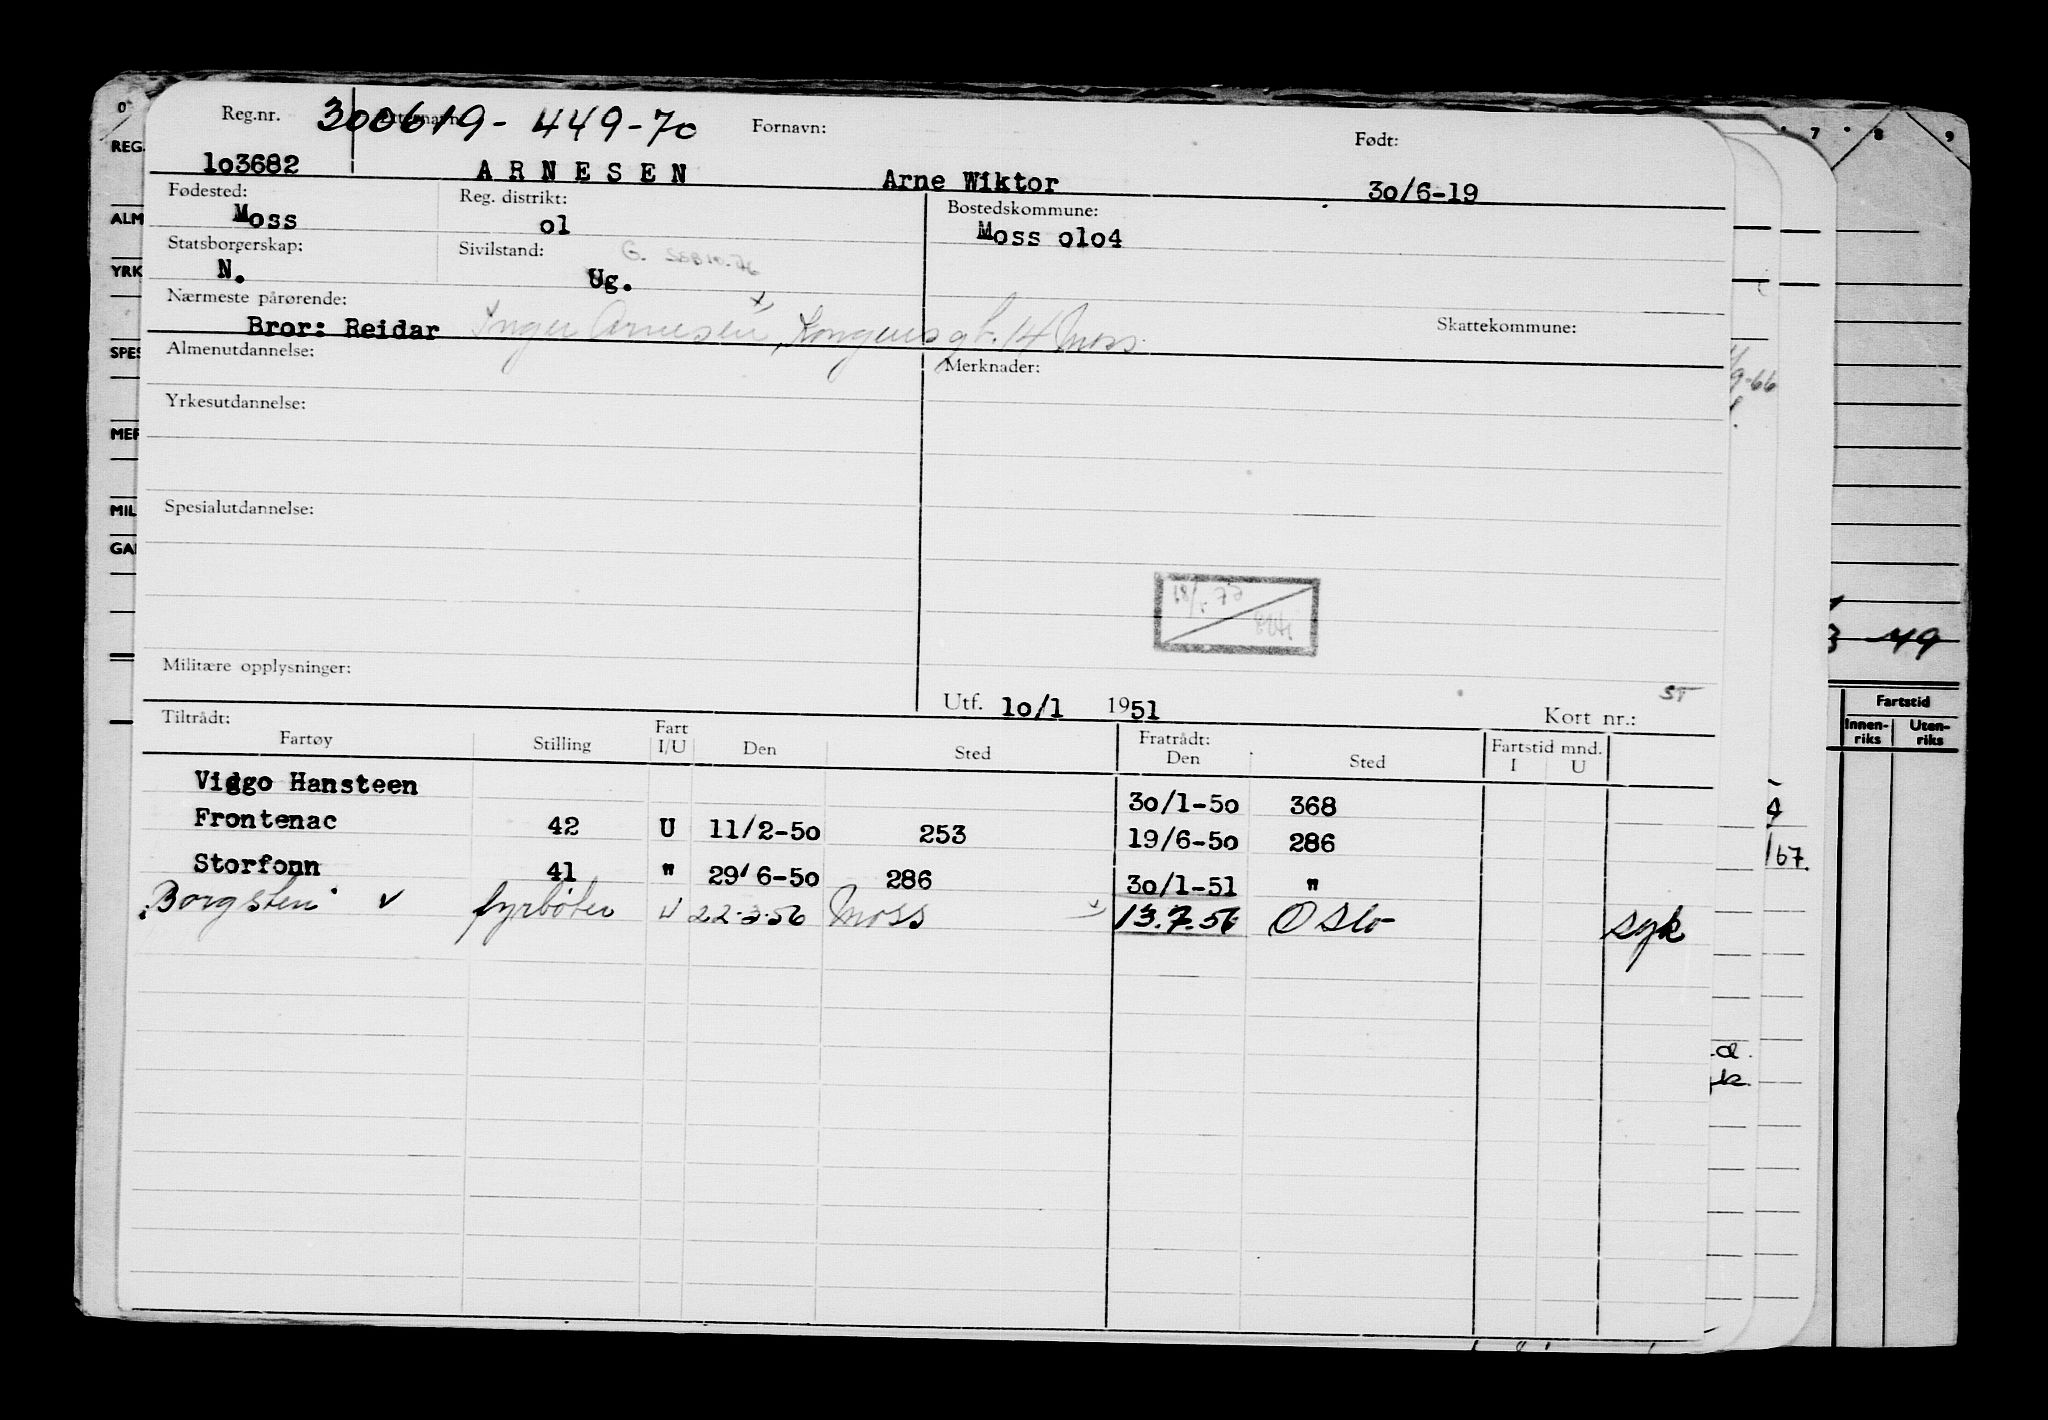 Reg.nr. 300619-449-70 Fornavn: Født:
lo3682 ARNESEN Arne Wiktor 3o/6-19
Fødested: Reg. distrikt: Bostedskommune:
Moss ol Moss olo4
Statsborgerskap: Sivilstand: G.
N. Ug.
Nærmeste pårørende:
Bror: Reidar Inger Arnesen, Kongensgt. 14 Moss Skattekommune:
Almenutdannelse: Merknader:
Yrkesutdannelse:
Spesialutdannelse:
Militære opplysninger:
Utf. lo/1 1951 Kort nr.:
Tiltrådt: Fart Fratrådt: Fartstid mnd.
Fartøy Stilling I/U Den Sted Den Sted I U
Viggo Hansteen 3o/1-5o 368
Frontenac 42 U 11/2-5o 253 19/6-5o 286
Storfonn 41 " 29/6-5o 286 3o/1-51 "
Borgsten v fyrbøter U 22.3.56 Moss 13.7.56 Oslo syk
O 7 8 9
REG.
ALM
YRK
SPES
MER
MIL
GA
9-66
49
Fartstid
Innen-riks Uten-riks
/67.